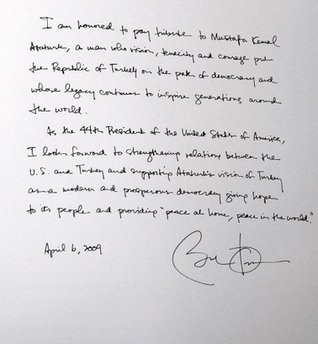 I am honored to pay tribute to Mustafa Kemal
Ataturk, a man who vision, tenacity and courage put
the Republic of Turkey on the path of democracy and
whose legacy continues to inspire generations around
the world.
As the 44th President of the United States of America,
I look forward to strengthening relations between the
U.S. and Turkey and supporting Ataturk's vision of Turkey
as a modern and prosperous democracy giving hope
to its people and providing "peace at home, peace in the world."
April 6, 2009